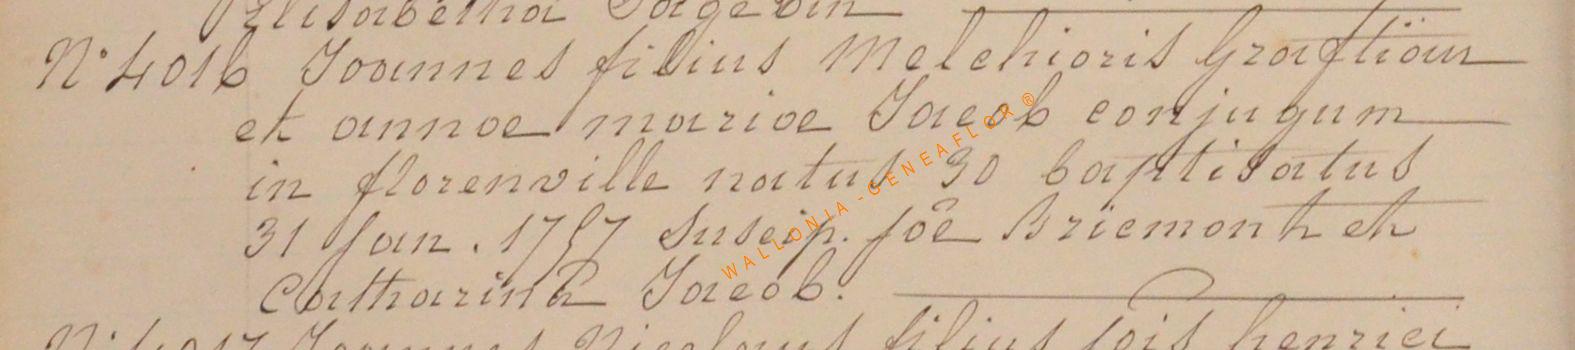 Elisabetha
N° 4016 Joannes filius Melchioris Graftiau
et annae mariae Jacob conjugum
in florenville natus 30 baptisatus
31 Jan. 1757 Suscip. joê Briemont et
Catharina Jacob.
N° 4017 Joannes Nicolaus filius jois henrici
WALLONIA - GENEAFLOR ®